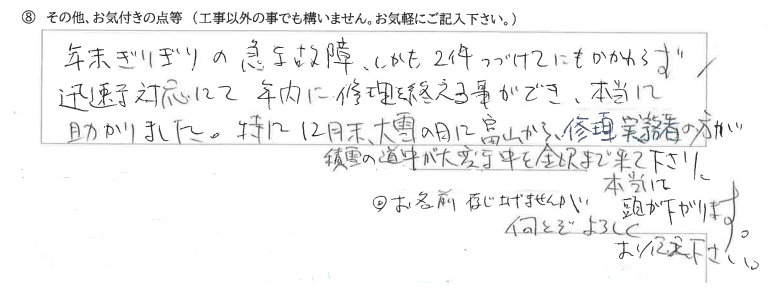 ⑧ その他、お気付きの点等（工事以外の事でも構いません。お気軽にご記入下さい。）
年末ぎりぎりの急な故障、しかも2件つづけてにもかかわらず
迅速な対応にて年内に修理を終える事ができ、本当に
助かりました。特に12月末、大雪の日に富山から、修理実務者の方が
積雪の道中が大変な中を金沢まで来て下さり、
本当に
頭が下がります。
◎お名前存じ上げませんが
何とぞよろしく
お伝え下さい。